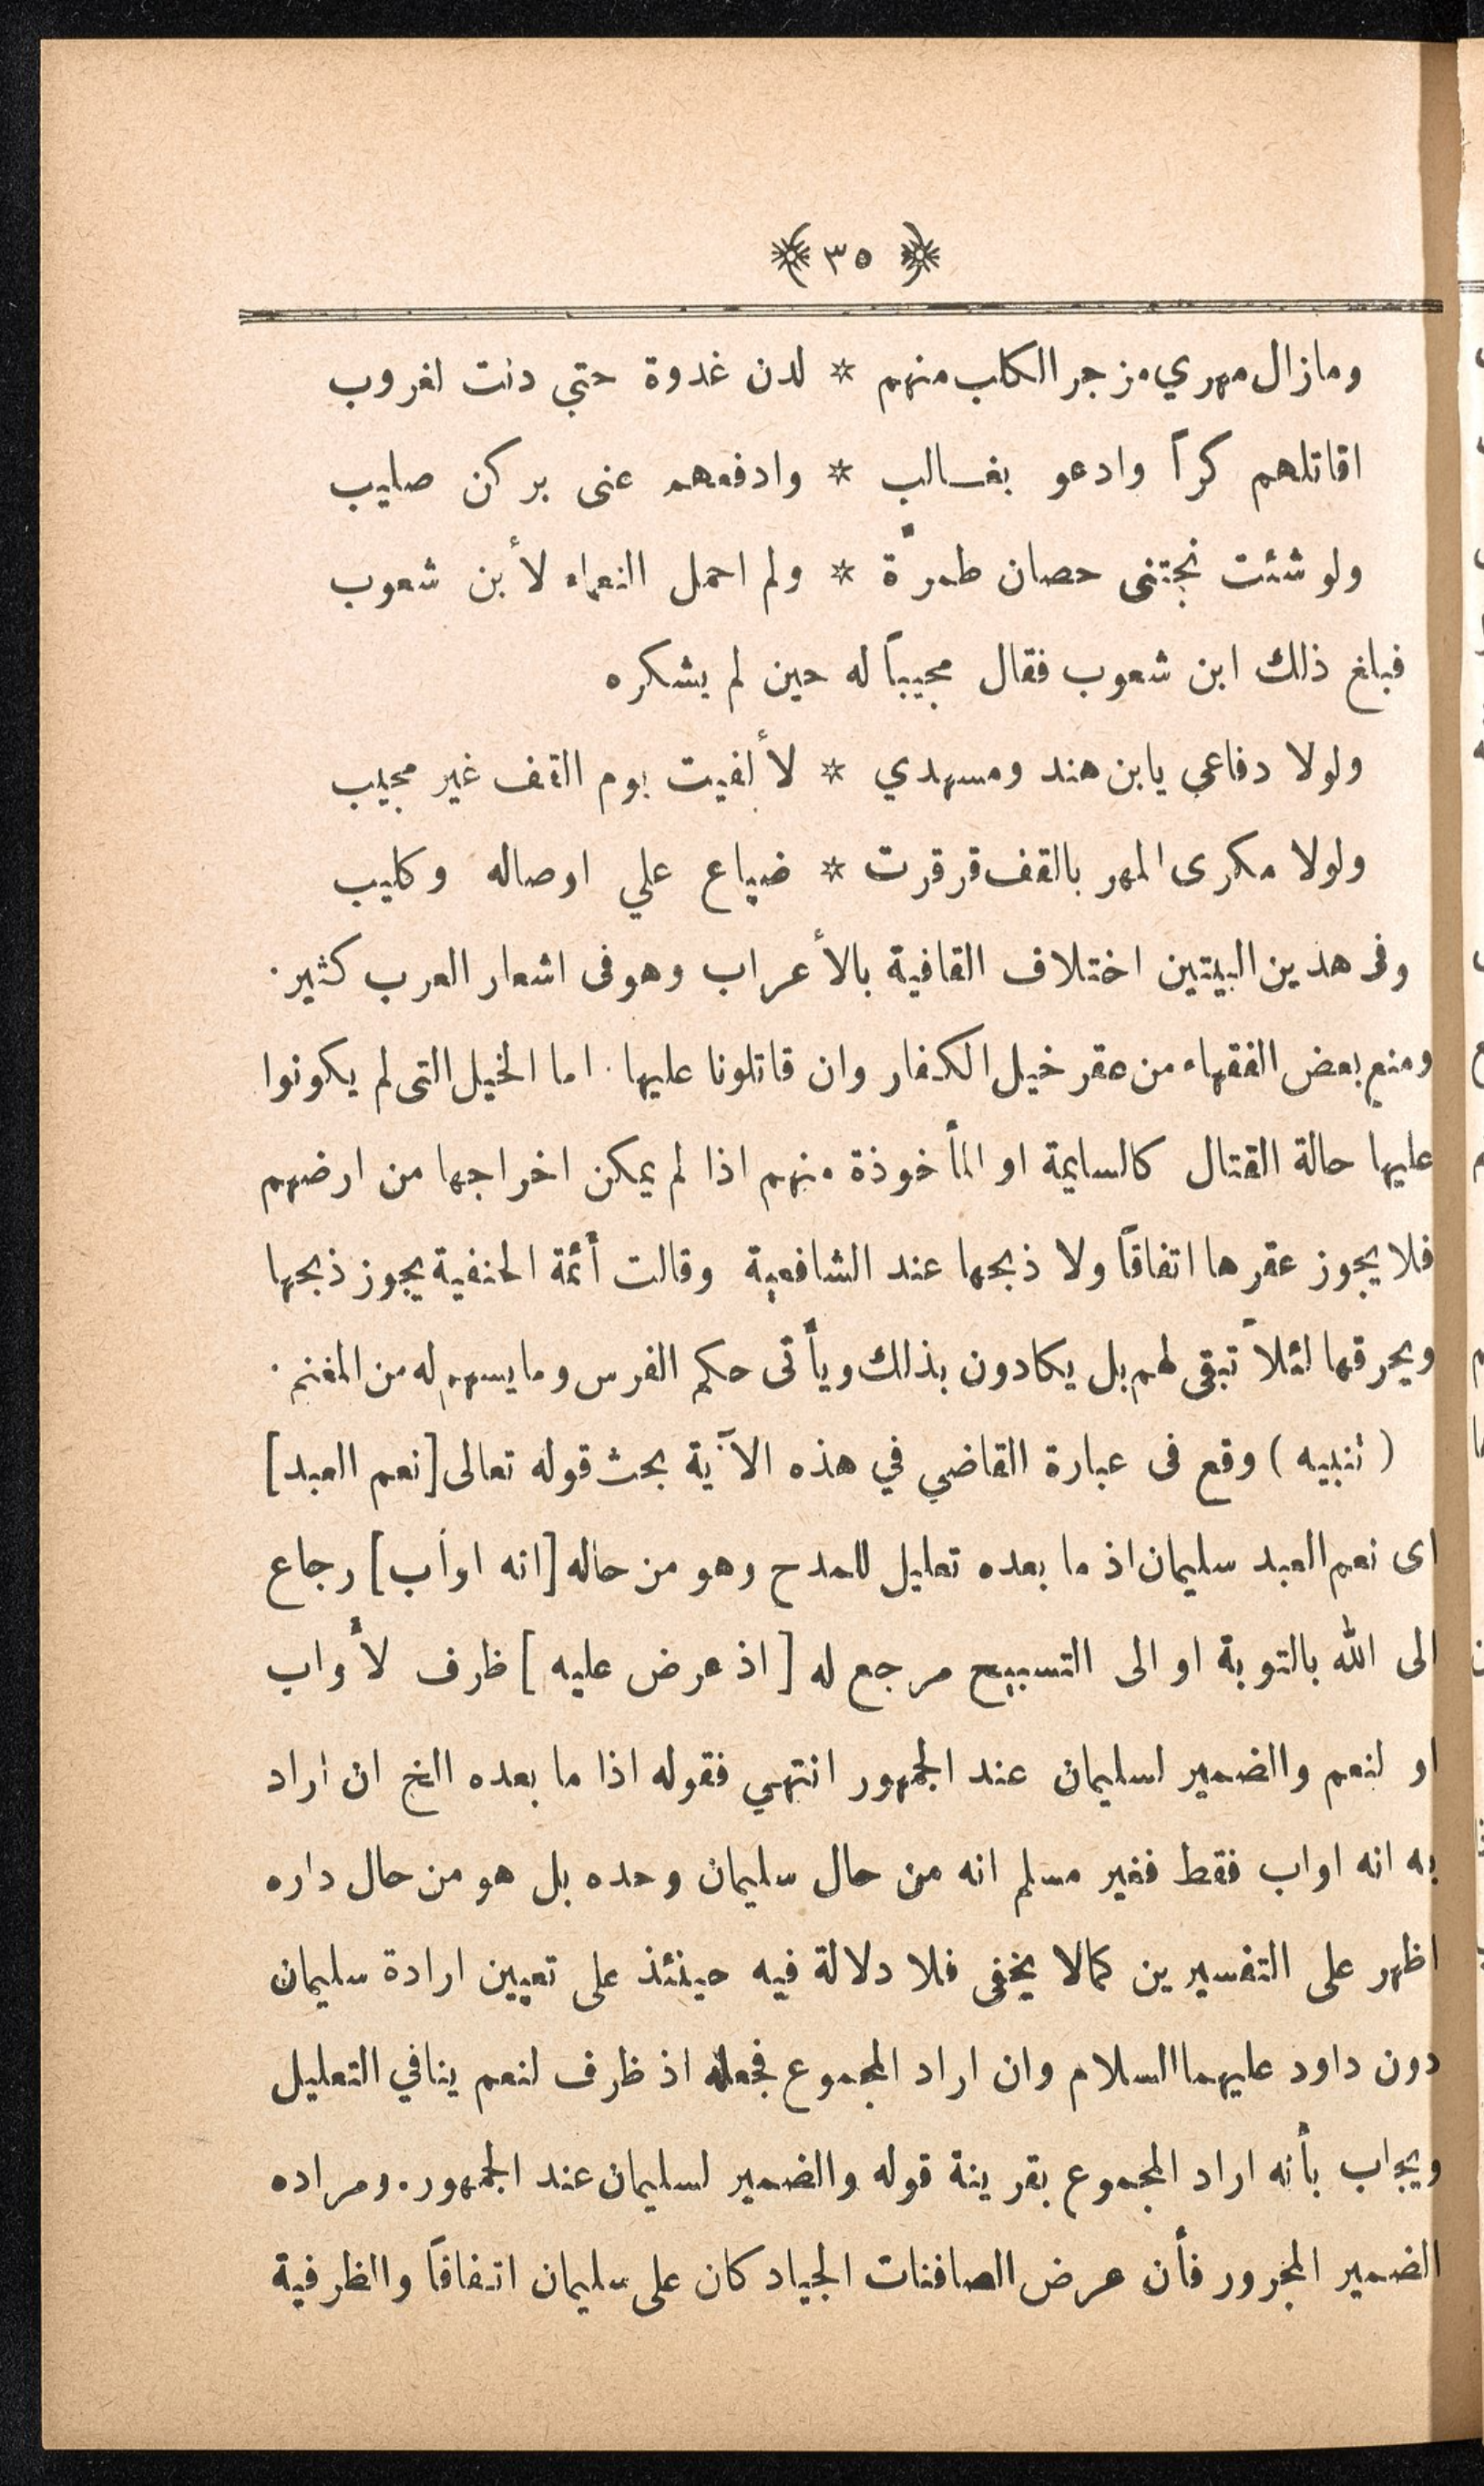 ﴿ ٣٥ ﴾
ومازال مهري مزجر الكلب منهم * لدن غدوة حتي دنت لغروب
اقاتلهم كراً وادعو بغالب * وادفعهم عنى بركن صليب
ولو شئت نجتنى حصان طمرّة * ولم احمل النعماء لأبن شعوب
فبلغ ذلك ابن شعوب فقال مجيباً له حين لم يشكره
ولولا دفاعي يابن هند ومسهدي * لألفيت يوم القف غير مجيب
ولولا مكرى المهر بالقف قرقرت * ضباع علي اوصاله وكليب
وفى هذين البيتين اختلاف القافية بالأعراب وهوفى اشعار العرب كثير٠
ومنع بعض الفقهاء من عقر خيل الكفار وان قاتلونا عليها ٠ اما الخيل التى لم يكونوا
عليها حالة القتال كالسايمة او المأخوذة منهم اذا لم يمكن اخراجها من ارضهم
فلايجوز عقرها اتفاقاً ولا ذبحها عند الشافعية وقالت أئمة الحنفية يجوز ذبحها
ويحرقها لئلاً تبقى لهم بل يكادون بذلك ويأتى حكم الفرس ومايسهم له من المغنم ٠
( تنبيه ) وقع فى عبارة القاضي في هذه الآية بحث قوله تعالى [نعم العبد]
اى نعم العبد سليمان اذ ما بعده تعليل للمدح وهو من حاله [انه اواب] رجاع
الى الله بالتوبة او الى التسبيح مرجع له [ اذ عرض عليه ] ظرف لأواب
او لنعم والضمير لسليمان عند الجمهور انتهي فقوله اذا ما بعده الخ ان اراد
به انه اواب فقط فغير مسلم انه من حال سليمان وحده بل هو من حال داره
اظهر على التفسيرين كمالا يخفى فلا دلالة فيه حينئذ على تعيين ارادة سليمان
دون داود عليهما السلام وان اراد المجموع فجعله اذ ظرف لنعم ينافي التعليل
ويجاب بأنه اراد المجموع بقرينة قوله والضمير لسليمان عند الجمهور٠ ومراده
الضمير المجرور فأن عرض الصافنات الجياد كان على سليمان اتفاقاً والظرفية